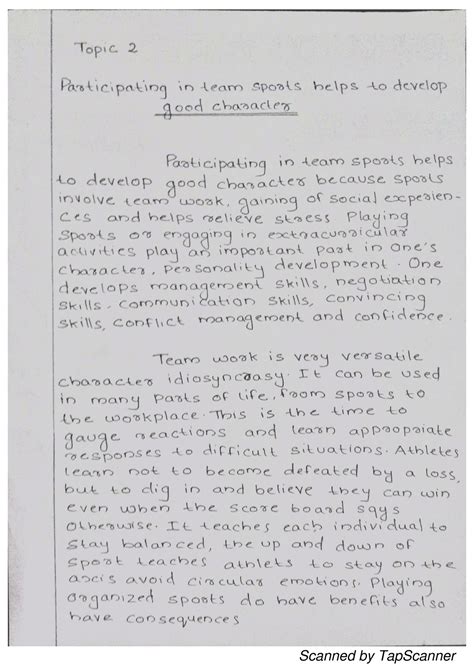 Topic 2
Participating in team sports helps to develop
good character
Participating in team sports helps
to develop good character because sports
involve team work, gaining of social experien-
ces and helps relieve stress Playing
Sports or engaging in extracurricular
activities play an important part in one's
character, Personality development. One
develops management skills, negotiation
skills, communication skills, convincing
skills, conflict management and confidence.
Team work is very versatile
character idiosyncrasy. It can be used
in many parts of life, from sports to
the workplace. This is the time to
gauge reactions and learn appropriate
responses to difficult situations. Athletes
learn not to become defeated by a loss,
but to dig in and believe they can win
even when the score board says
otherwise. It teaches each individual to
stay balanced, the up and down of
sport teaches athlets to stay on the
axis avoid circular emotions. Playing
organized sports do have benefits also
have consequences
Scanned by TapScanner